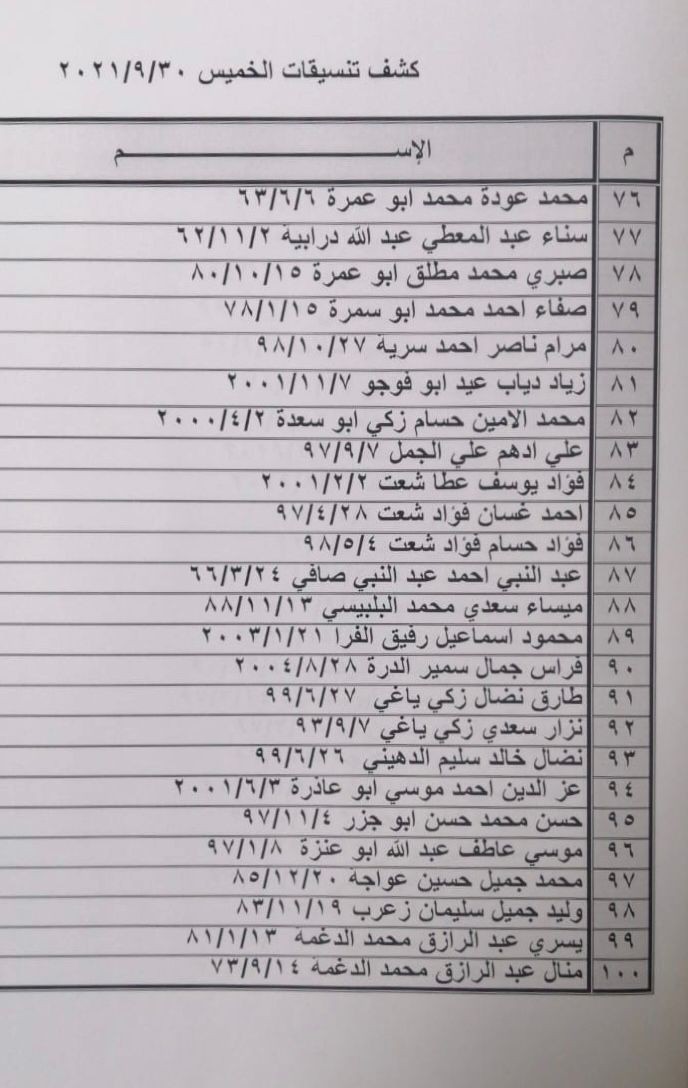 كشف تنسيقات الخميس ٢٠٢١/٩/٣٠
م الإســـــــــــم
٧٦ محمد عودة محمد ابو عمرة ٦٣/٦/٦
٧٧ سناء عبد المعطي عبد الله درابية ٦٢/١١/٢
٧٨ صبري محمد مطلق ابو عمرة ٨٠/١٠/١٥
٧٩ صفاء احمد محمد ابو سمرة ٧٨/١/١٥
٨٠ مرام ناصر احمد سرية ٩٨/١٠/٢٧
٨١ زياد دياب عيد ابو فوجو ٢٠٠١/١١/٧
٨٢ محمد الامين حسام زكي ابو سعدة ٢٠٠٠/٤/٢
٨٣ علي ادهم علي الجمل ٩٧/٩/٧
٨٤ فؤاد يوسف عطا شعت ٢٠٠١/٢/٢
٨٥ احمد غسان فؤاد شعت ٩٧/٤/٢٨
٨٦ فؤاد حسام فؤاد شعت ٩٨/٥/٤
٨٧ عبد النبي احمد عبد النبي صافي ٦٦/٣/٢٤
٨٨ ميساء سعدي محمد البلبيسي ٨٨/١١/١٣
٨٩ محمود اسماعيل رفيق الفرا ٢٠٠٣/١/٢١
٩٠ فراس جمال سمير الدرة ٢٠٠٤/٨/٢٨
٩١ طارق نضال زكي ياغي ٩٩/٦/٢٧
٩٢ نزار سعدي زكي ياغي ٩٣/٩/٧
٩٣ نضال خالد سليم الدهيني ٩٩/٦/٢٦
٩٤ عز الدين احمد موسي ابو عاذرة ٢٠٠١/٦/٣
٩٥ حسن محمد حسن ابو جزر ٩٧/١١/٤
٩٦ موسي عاطف عبد الله ابو عنزة ٩٧/١/٨
٩٧ محمد جميل حسين عواجة ٨٥/١٢/٢٠
٩٨ وليد جميل سليمان زعرب ٨٣/١١/١٩
٩٩ يسري عبد الرازق محمد الدغمة ٨١/١/١٣
١٠٠ منال عبد الرازق محمد الدغمة ٧٣/٩/١٤